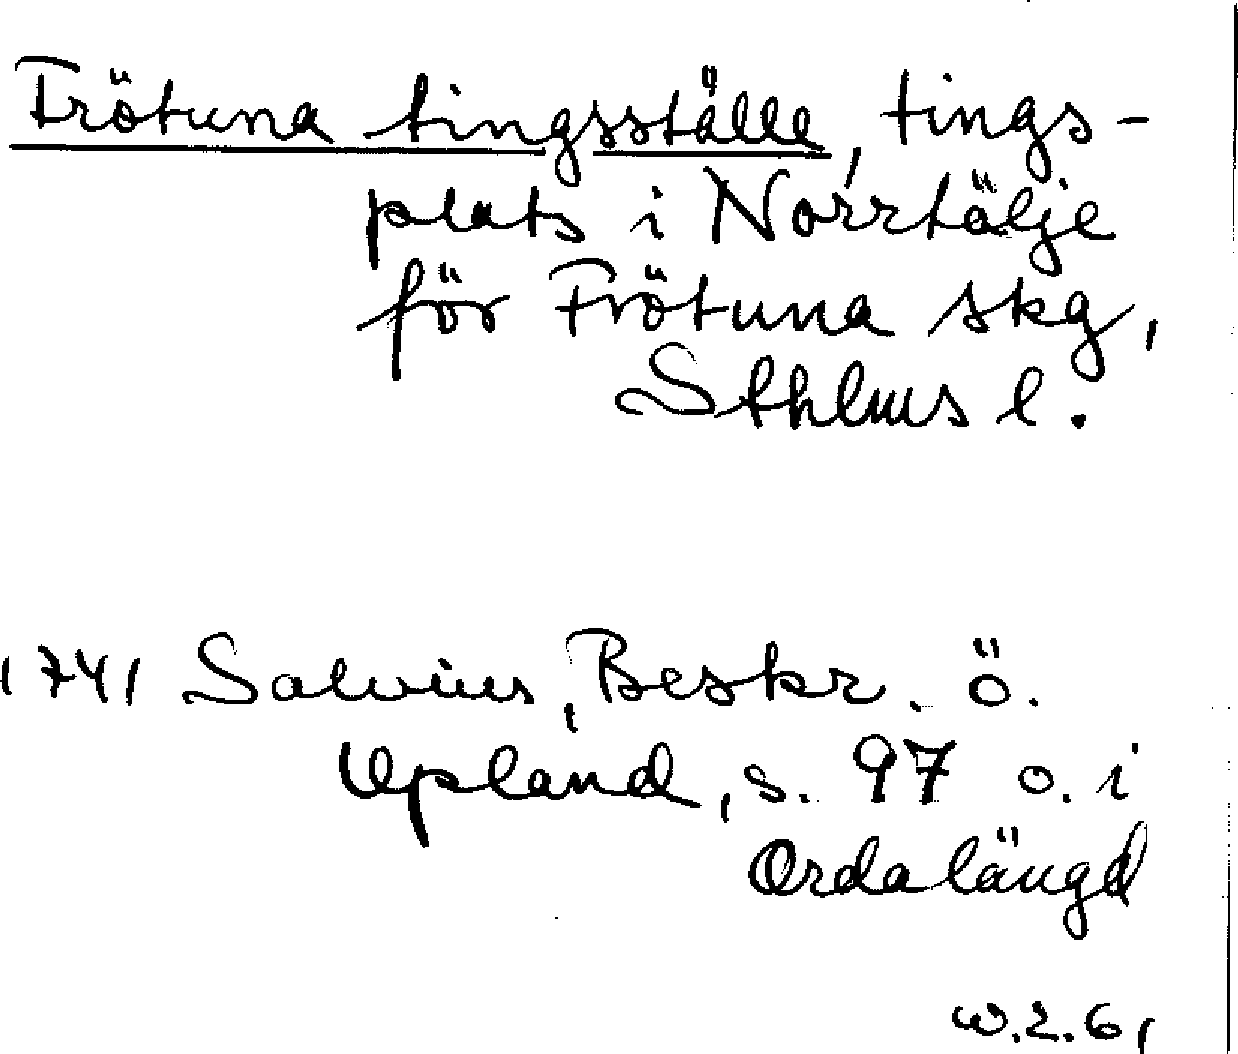 Frötuna tingsställe, tings-
plats i Norrtälje
för Frötuna skg,
Sthlms l.
1741 Salvius, Beskr. ö.
Upland, s. 97 o. i
Ordalängd
w.2.61